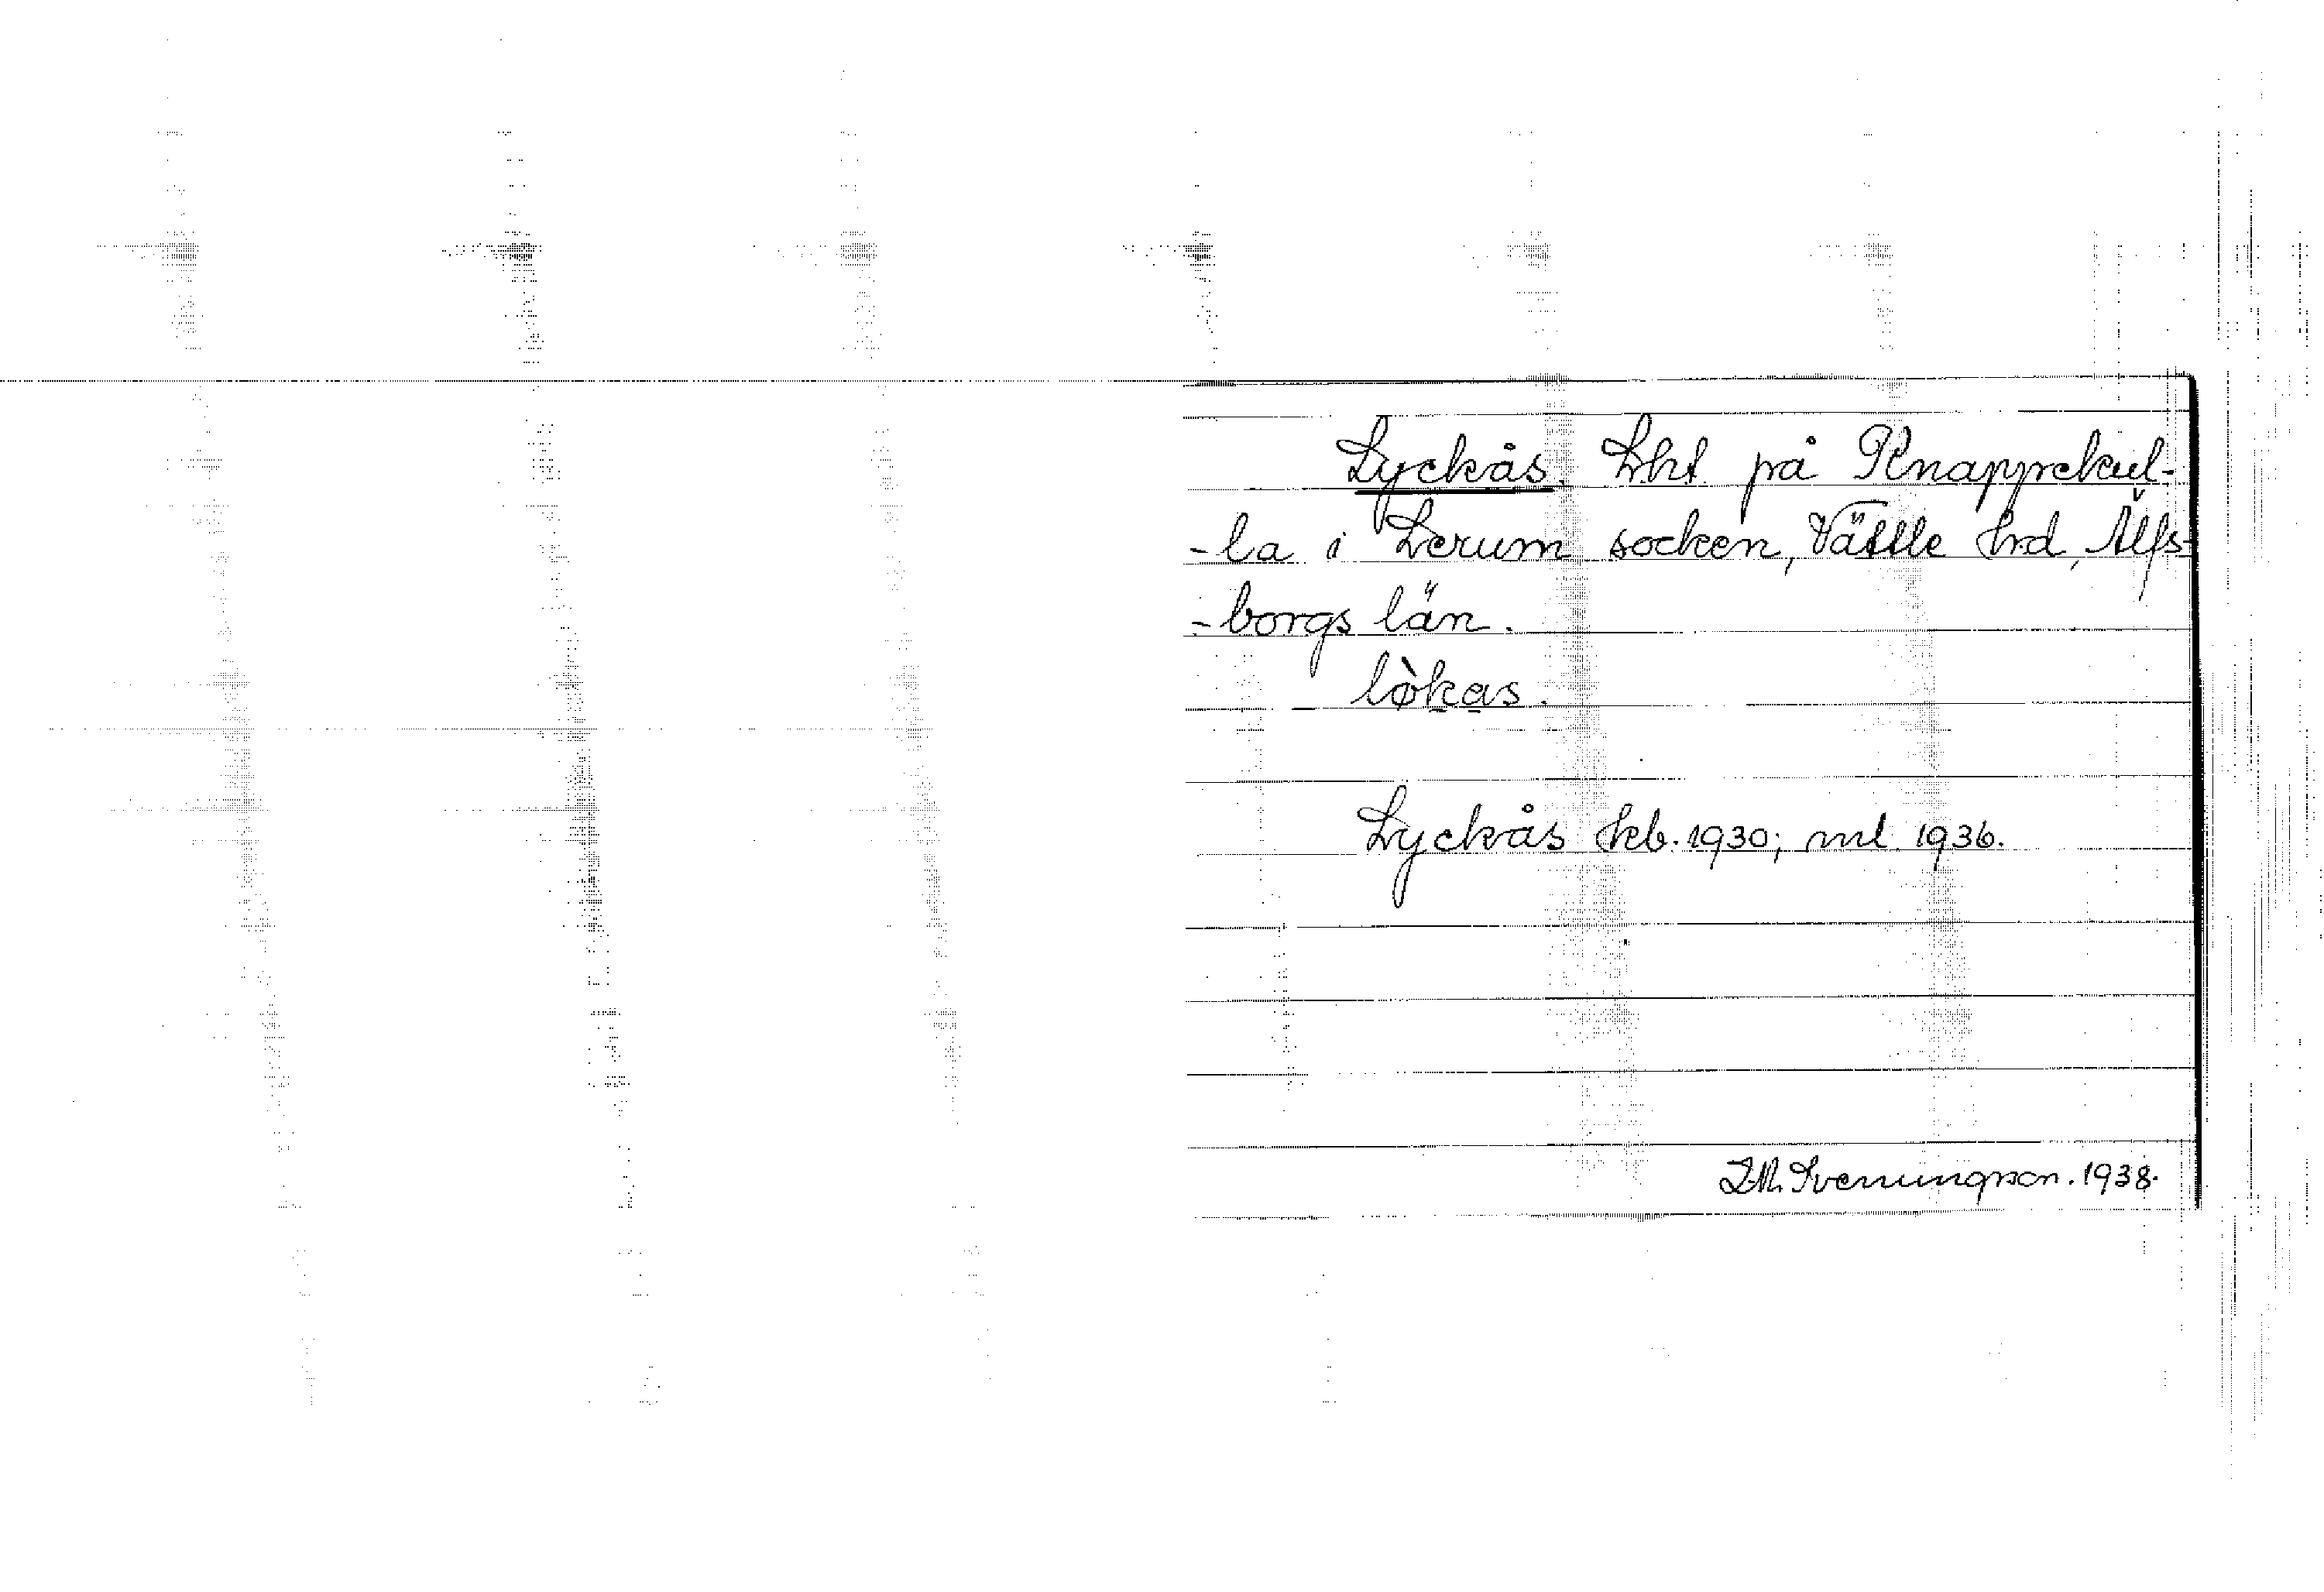 Lyckås. Lht på Knappekul-
-la i Lerum socken, Vättle hrd, Älfs-
-borgs län.
lø̀kas.
Lyckås kb. 1930; ml 1936.
I.M. Svenungson. 1938.